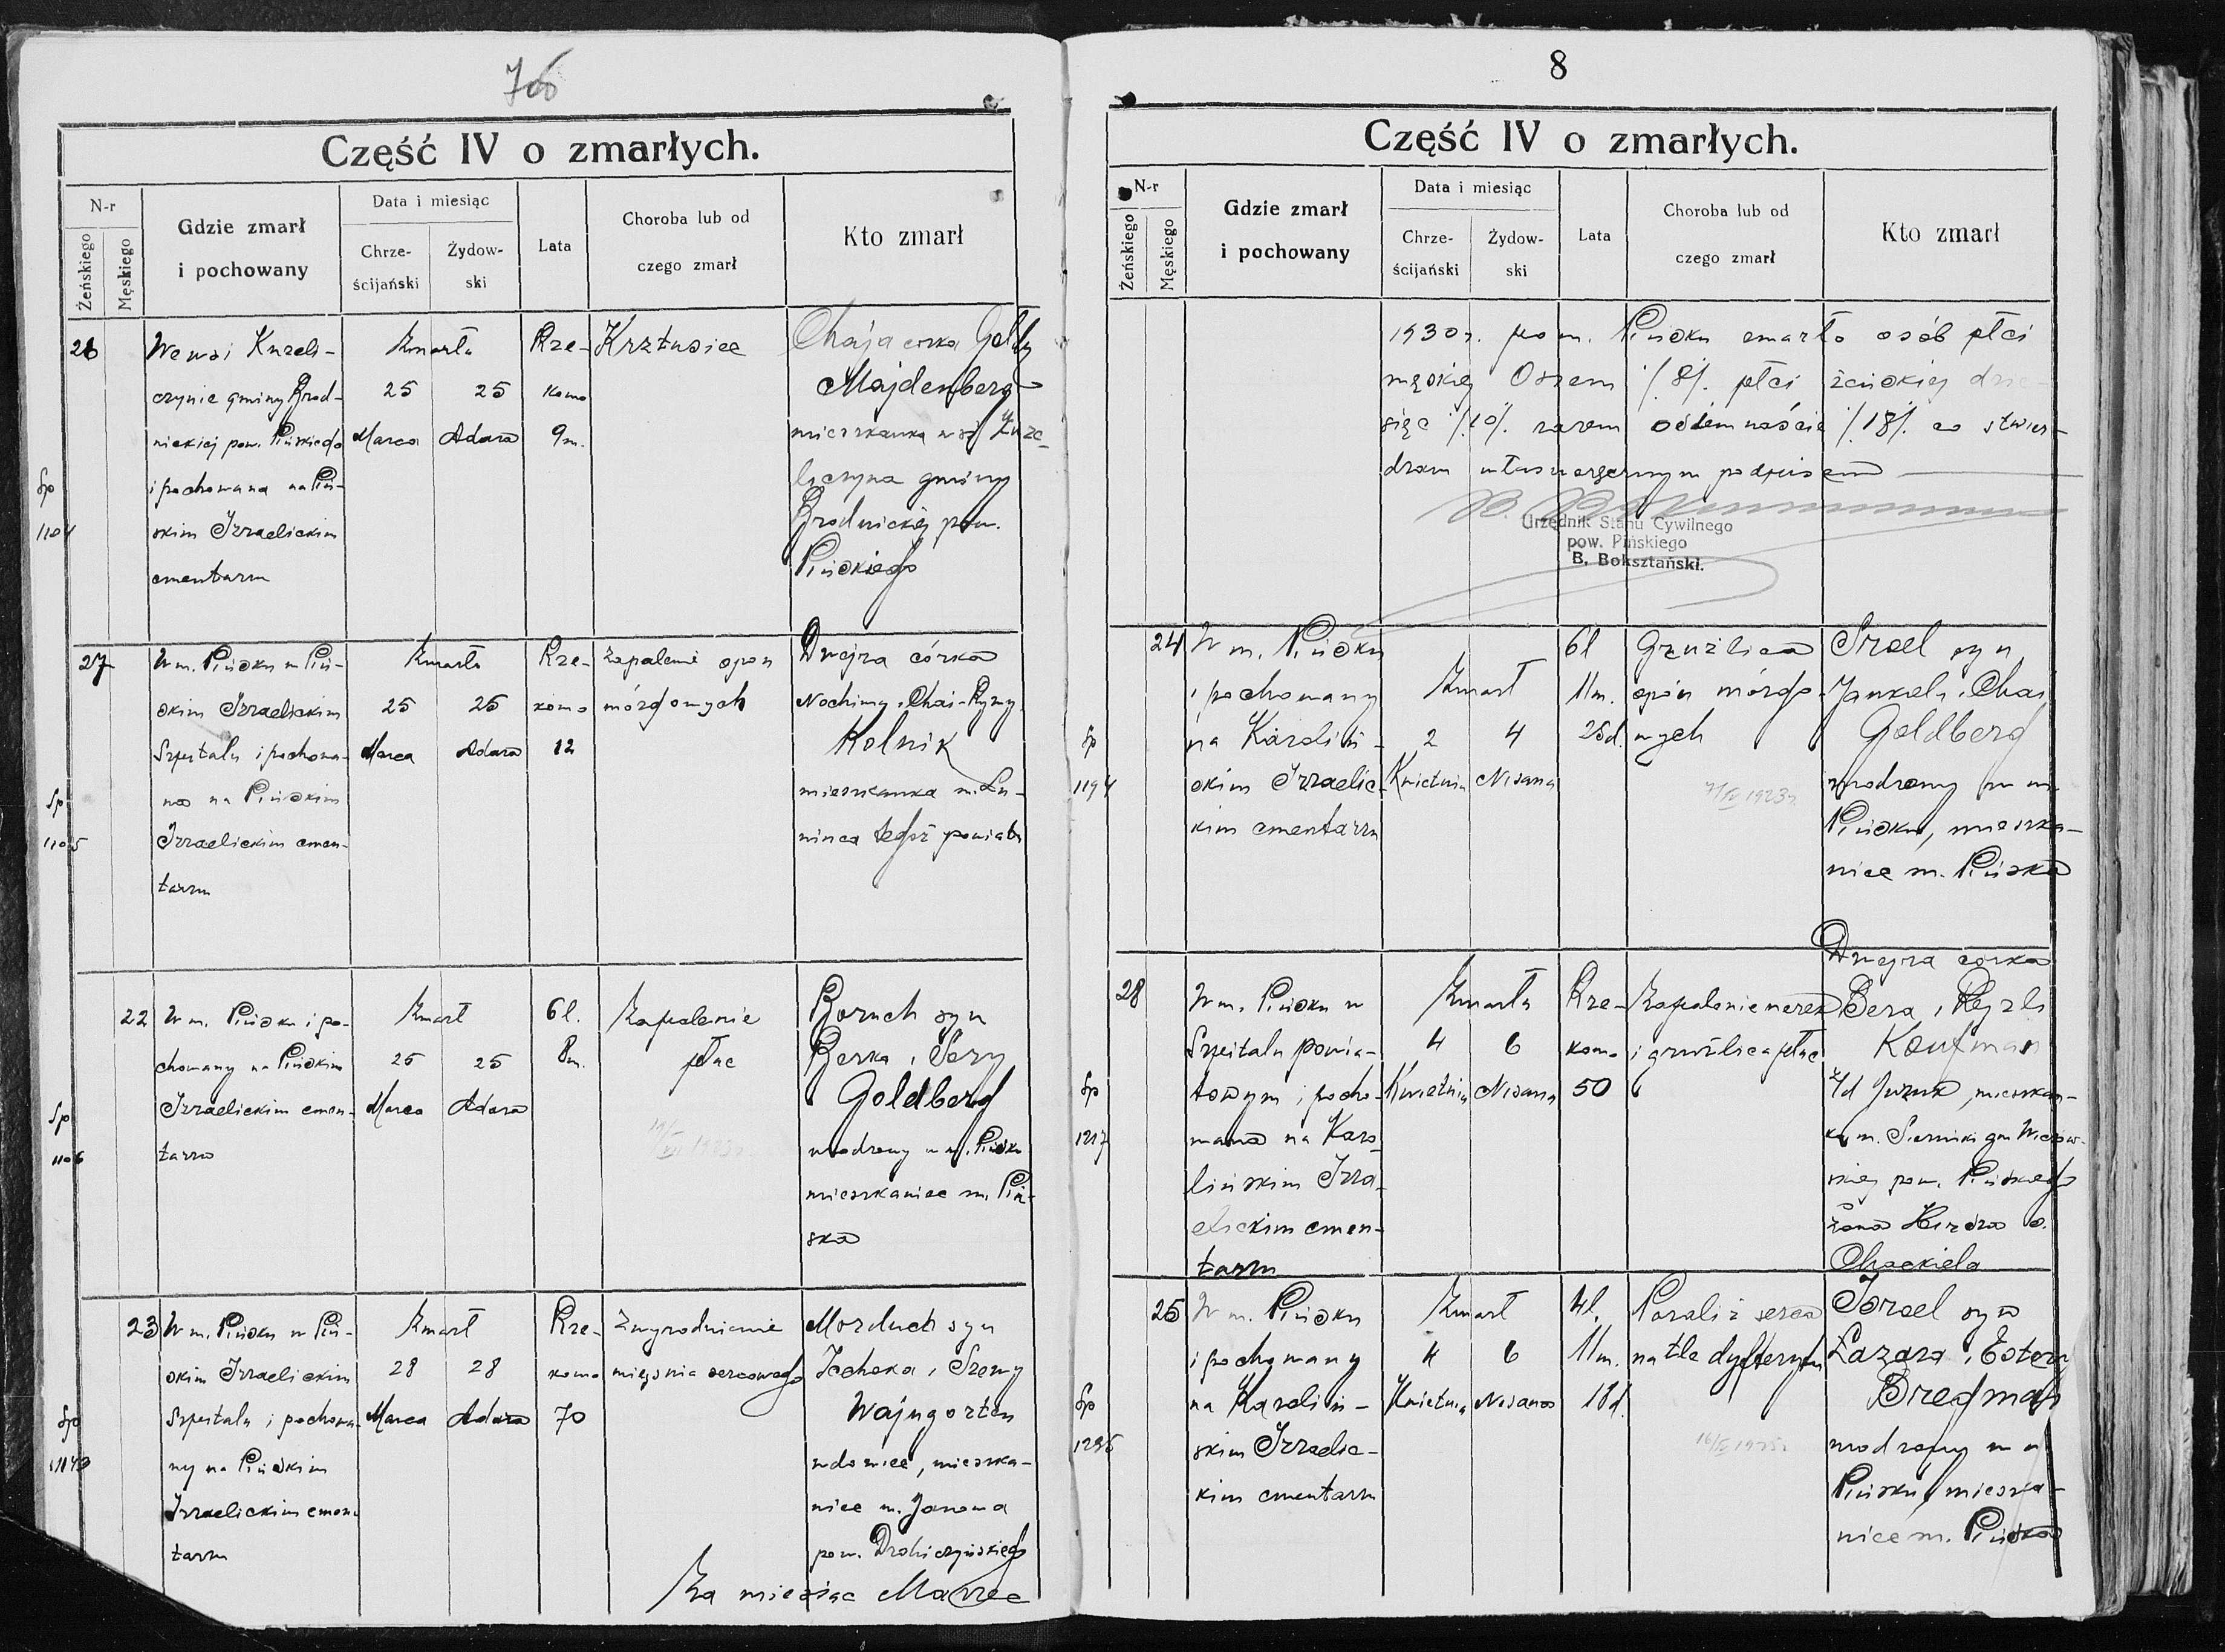 76
Część IV o zmarłych.
N-r
Żeńskiego
Męskiego
Gdzie zmarł
i pochowany
Data i miesiąc
Chrze-
ścijański
Żydow-
ski
Lata
Choroba lub od
czego zmarł
Kto zmarł
26
We wsi Kuzeli-
czynie gminy Brod-
nickiej pow. Pińskiego
i pochowana na Piń-
skim Izraelickim
cmentarzu
Zmarła
25
25
Marca
Adara
Rze-
komo
9 m.
Krztusiec
Chaja córka Goldy
Majdenberg
mieszkanka wsi Kuze-
liczyna gminy
Brodnickiej pow.
Pińskiego
Sp
1104
27
W m. Pińsku w Piń-
skim Izraelickim
Szpitalu i pochowa-
na na Pińskim
Izraelickim cmen-
tarzu
Zmarła
25
25
Marca
Adara
Rze-
komo
12
Zapalenie opon
mózgowych
Dwejra córka
Nochima i Chai-Rywy
Kolnik
mieszkanka m. Łu-
nińca tegoż powiatu
Sp
1105
22
W m. Pińsku i po-
chowany na Pińskim
Izraelickim cmen-
tarzu
Zmarł
25
25
Marca
Adara
6 l.
8 m.
Zapalenie
płuc
Boruch syn
Berka i Sory
Goldberg
urodzony w m. Pińsku
mieszkaniec m. Piń-
ska
Sp
1106
23
W m. Pińsku w Piń-
skim Izraelickim
Szpitalu i pochowa-
ny na Pińskim
Izraelickim cmen-
tarzu
Zmarł
28
28
Marca
Adara
Rze-
komo
70
Zwyrodnienie
mięśnia sercowego
Morduch syn
Icchoka i Szewy
Wajngorten
wdowiec, mieszka-
niec m. Janowa
pow. Drohiczyńskiego
Sp
Za miesiąc Marzec
8
Część IV o zmarłych.
N-r
Żeńskiego
Męskiego
Gdzie zmarł
i pochowany
Data i miesiąc
Chrze-
ścijański
Żydow-
ski
Lata
Choroba lub od
czego zmarł
Kto zmarł
1930 r. po m. Pińsku zmarło osób płci
męskiej Osiem /8/. płci żeńskiej dzie-
sięć /10/. razem osiemnaście /18/. co stwier-
dzam własnoręcznym podpisem
Urzędnik Stanu Cywilnego
pow. Pińskiego
B.Boksztański.
24
W m. Pińsku
i pochowany
na Karoliń-
skim Izraelic-
kim cmentarzu
Zmarł
2
4
Kwietnia
Nisana
6 l
11 m.
25 d.
Gruźlica
opon mózgo-
wych
Izrael syn
Jankiela i Chai
Goldberg
urodzony w m.
Pińsku, mieszka-
niec m. Pińska
Sp
1194
28
W m. Pińsku w
Szpitalu powia-
towym i pocho-
wana na Karo-
lińskim Izra-
elickim cmen-
tarzu
Zmarła
4
6
Kwietnia
Nisana
Rze-
komo
50
Zapalenie nerek
i gruźlica płuc
Dwejra córka
Bera i Rejzli
Kaufman
mieszkan-
ka
skiej pow. Pińskiego
żona Hersza s.
Chackiela
Sp
1217
25
W m. Pińsku
i pochowany
na Karoliń-
skim Izraelic-
kim cmentarzu
Zmarł
4
6
Kwietnia
Nisana
4 l.
11 m.
18 d.
Paraliż serca
na tle dyfterytu
Izrael syn
Łazara i Estery
Bregman
urodzony w m
Pińsku mieszka-
niec m. Pińska
Sp